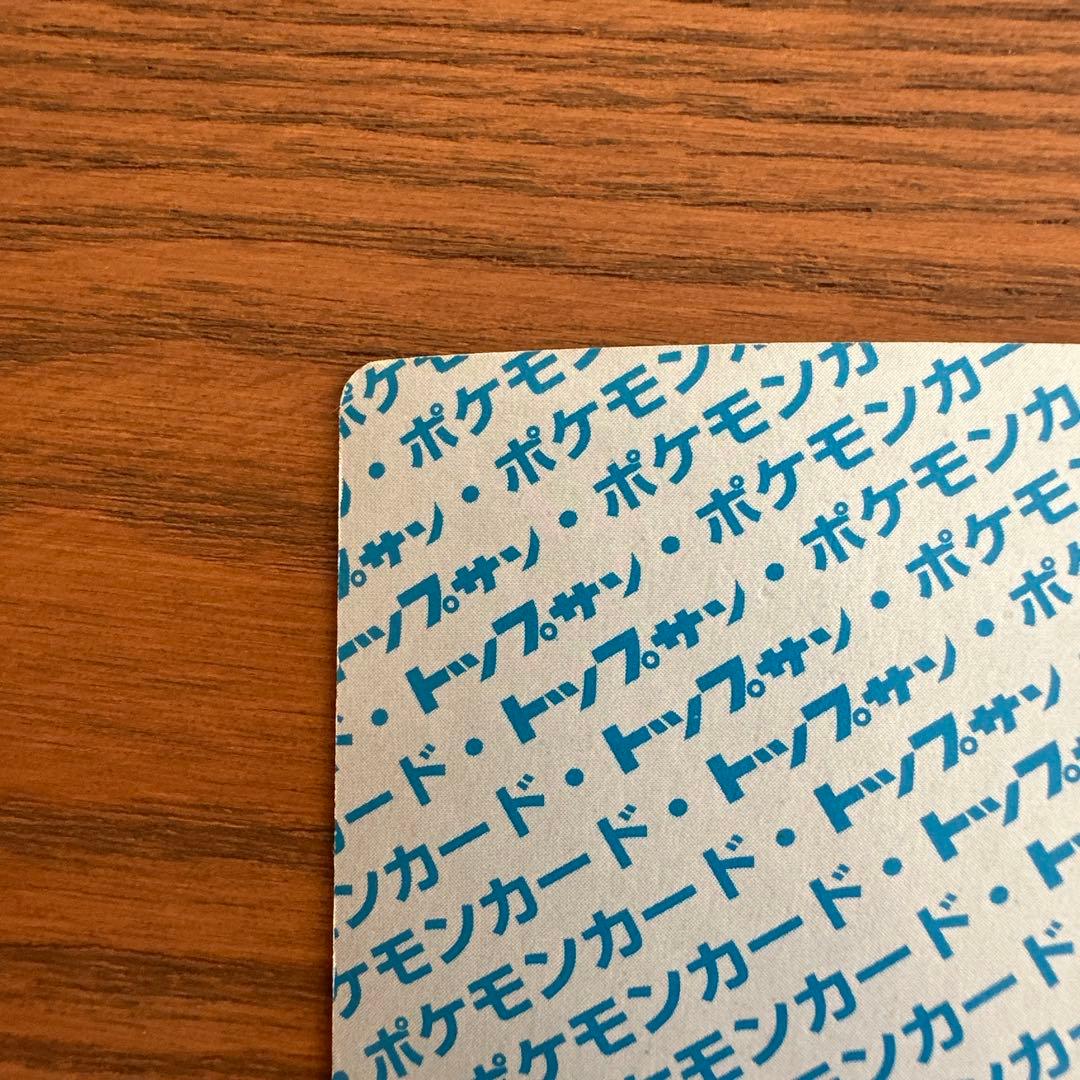 ポケモ
ン・ポケモン
プサン・ポケモン
トップサン・ポケモンカ
・トップサン・ポケモンカー
ード・トップサン・ポケモンカ
ンカード・トップサン・ポケモン
ケモンカード・トップサン・ポケ
ポケモンカード・トップサン
ポケモンカード・トップ
モンカード・ト
ンカード
カ